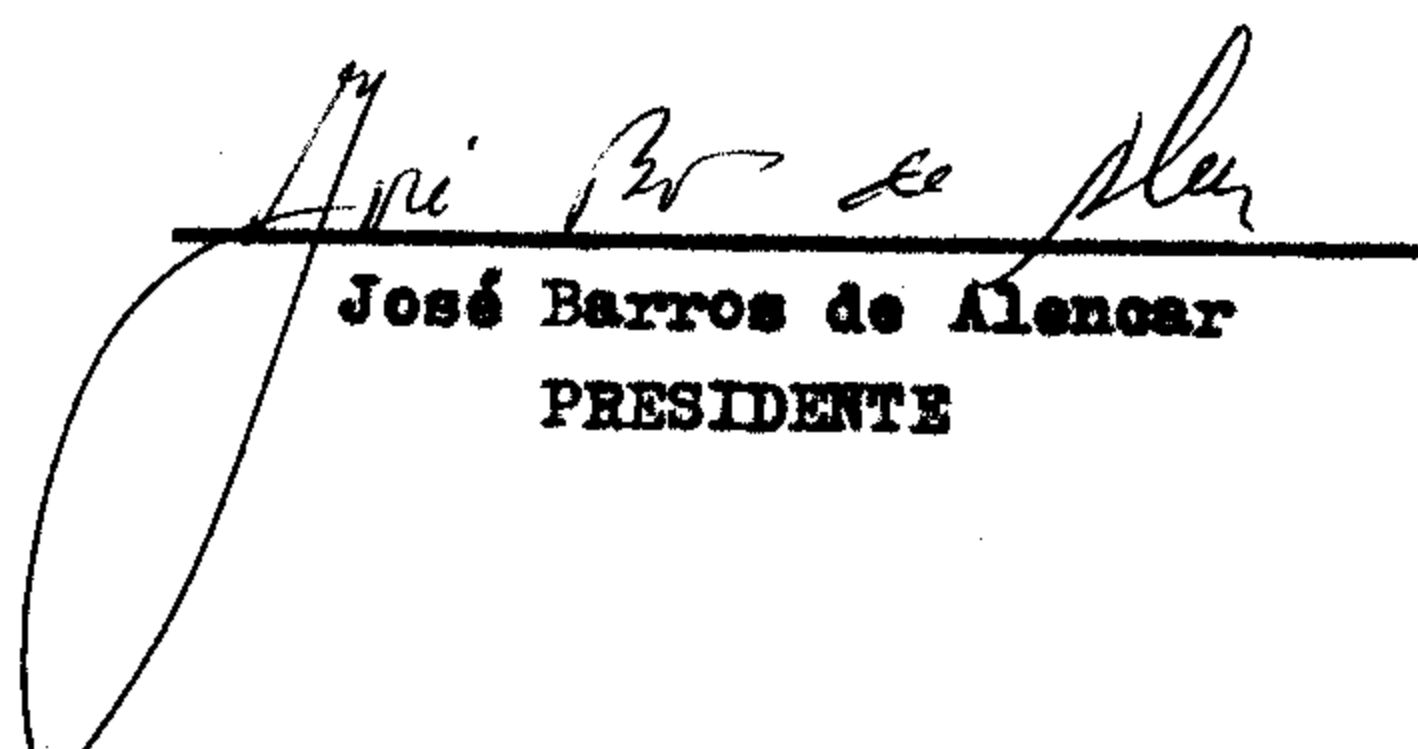 José Barros de Alencar
PRESIDENTE